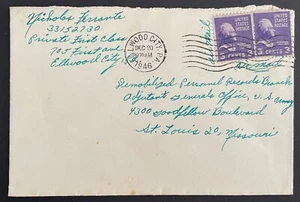 Nicholas Ferrante
33152730
Private First Class
705 First ave
Ellwood City
ELLWOOD CITY, PA.
DEC 20
1946
Air mail
UNITED STATES POSTAGE
3 CENTS 3
UNITED STATES POSTAGE
3 CENTS 3
Air mail
Demobilized Personel Records Branch
Adjutant Generals Office, U.S. Army
4300 Goodfellow Boulevard
St. Louis 20, Missouri